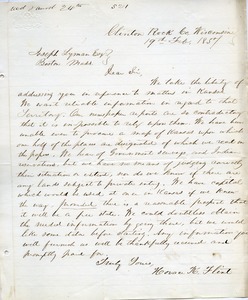 Recd & ansd 24th 521
Clinton Rock Co Wisconsin
19th Feb, 1857
Joseph Lyman Esq
Boston Mass
Dear Sir
We take the liberty of
addressing you in reference to matters in Kansas.
We want reliable information in regard to that
Territory. Our newspaper reports are so contradictory
that it is impossible to rely upon them. We have been
unable even to procure a map of Kansas upon which
one half of the places are designated of which we read in
the papers. We hear of Government Surveys and Indian
reservations but have no means of judging correctly
their situation or extent, nor do we know if there are
any lands subject to private entry. We have capital
which could be used, it seems in Kansas if we knew
the way, provided there is a reasonable prospect that
it will be a free state. We could doubtless obtain
the needed information by going there, but we would
like some data before starting. Any information you
will furnish us will be thankfully received and
promptly paid for.
Truly Yours,
Flint